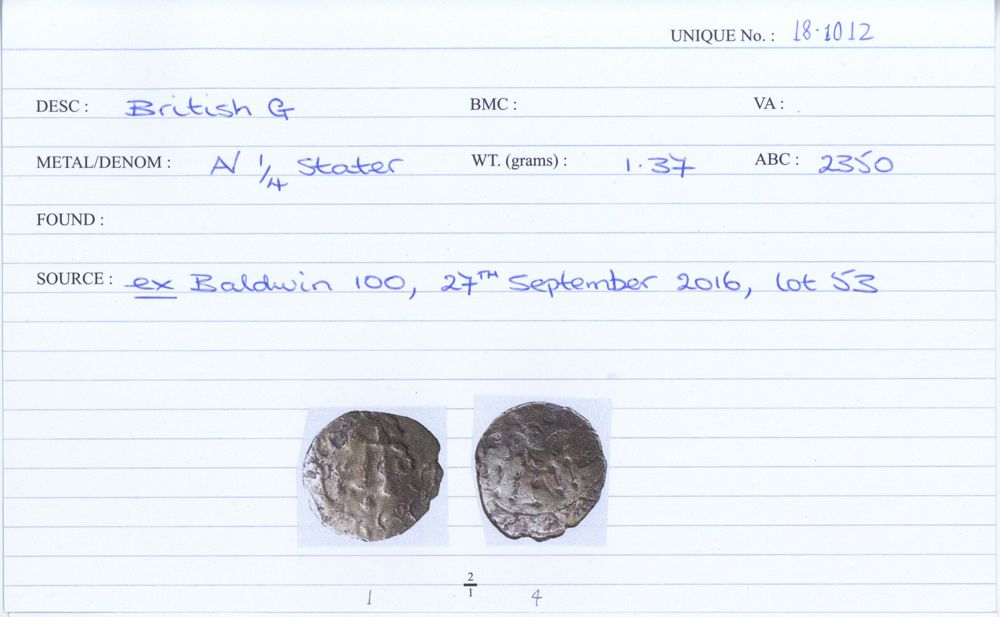 UNIQUE No. : 18.1012
DESC : British G BMC : VA :
METAL/DENOM : AV 1/4 Stater WT. (grams) : 1.37 ABC : 2350
FOUND :
SOURCE : ex Baldwin 100, 27TH September 2016, lot 53
2/1
1 4